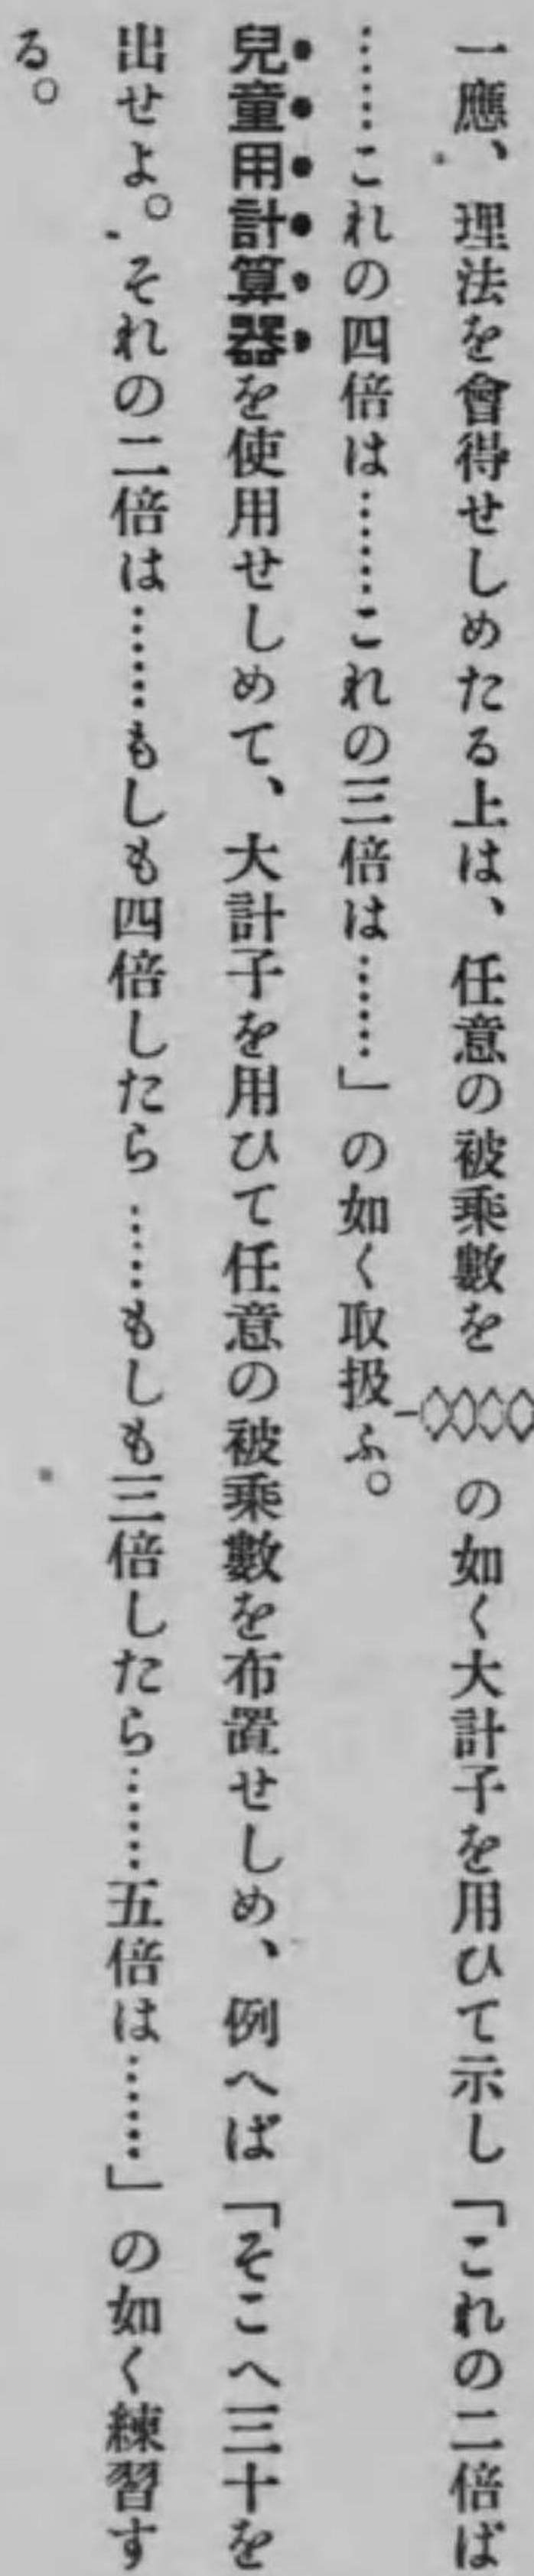 一應、理法を會得せしめたる上は、任意の被乘數を の如く大計子を用ひて示し「これの二倍ば
……これの四倍は……これの三倍は……」の如く取扱ふ。
兒童用計算器を使用せしめて、大計子を用ひて任意の被乘數を布置せしめ、例へば「そこへ三十を
出せよ。それの二倍は……もしも四倍したら……もしも三倍したら……五倍は……」の如く練習す
る。